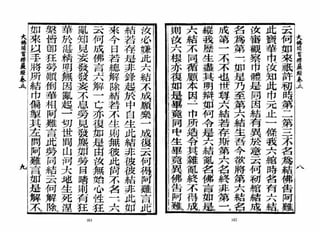 云何如來祇許初第一第二第三不名為結佛告阿難
此寶華巾汝知此巾元止一條我六綰時名有六結
汝審觀察巾體是同因結有異於意云何初綰結成
名為第一如是乃至第六結生吾今欲將第六結名
成第一不不也世尊六結若存斯第六名終非第一
縱我歷生盡其明辯如何令是六結亂名佛言如是
六結不同循顧本因一巾所造令其雜亂終不得成
則汝六根亦復如是畢竟同中生畢竟異佛告阿難
大佛頂首楞嚴經卷五
八
汝必嫌此六結不成願樂一成復云何得阿難言此
結若存是非鋒起於中自生此結非彼彼結非此如
來今日若總解除結若不生則無彼此尚不名一六
云何成佛言六解一亡亦復如是由汝無始心性狂
亂知見妄發發妄不息勞見發塵如勞目睛則有狂
華於湛精明無因亂起一切世間山河大地生死涅
槃皆即狂勞顛倒華相阿難言此勞同結云何解除
如來以手將所結巾偏掣其左問阿難言如是解不
大佛頂首楞嚴經卷五
九